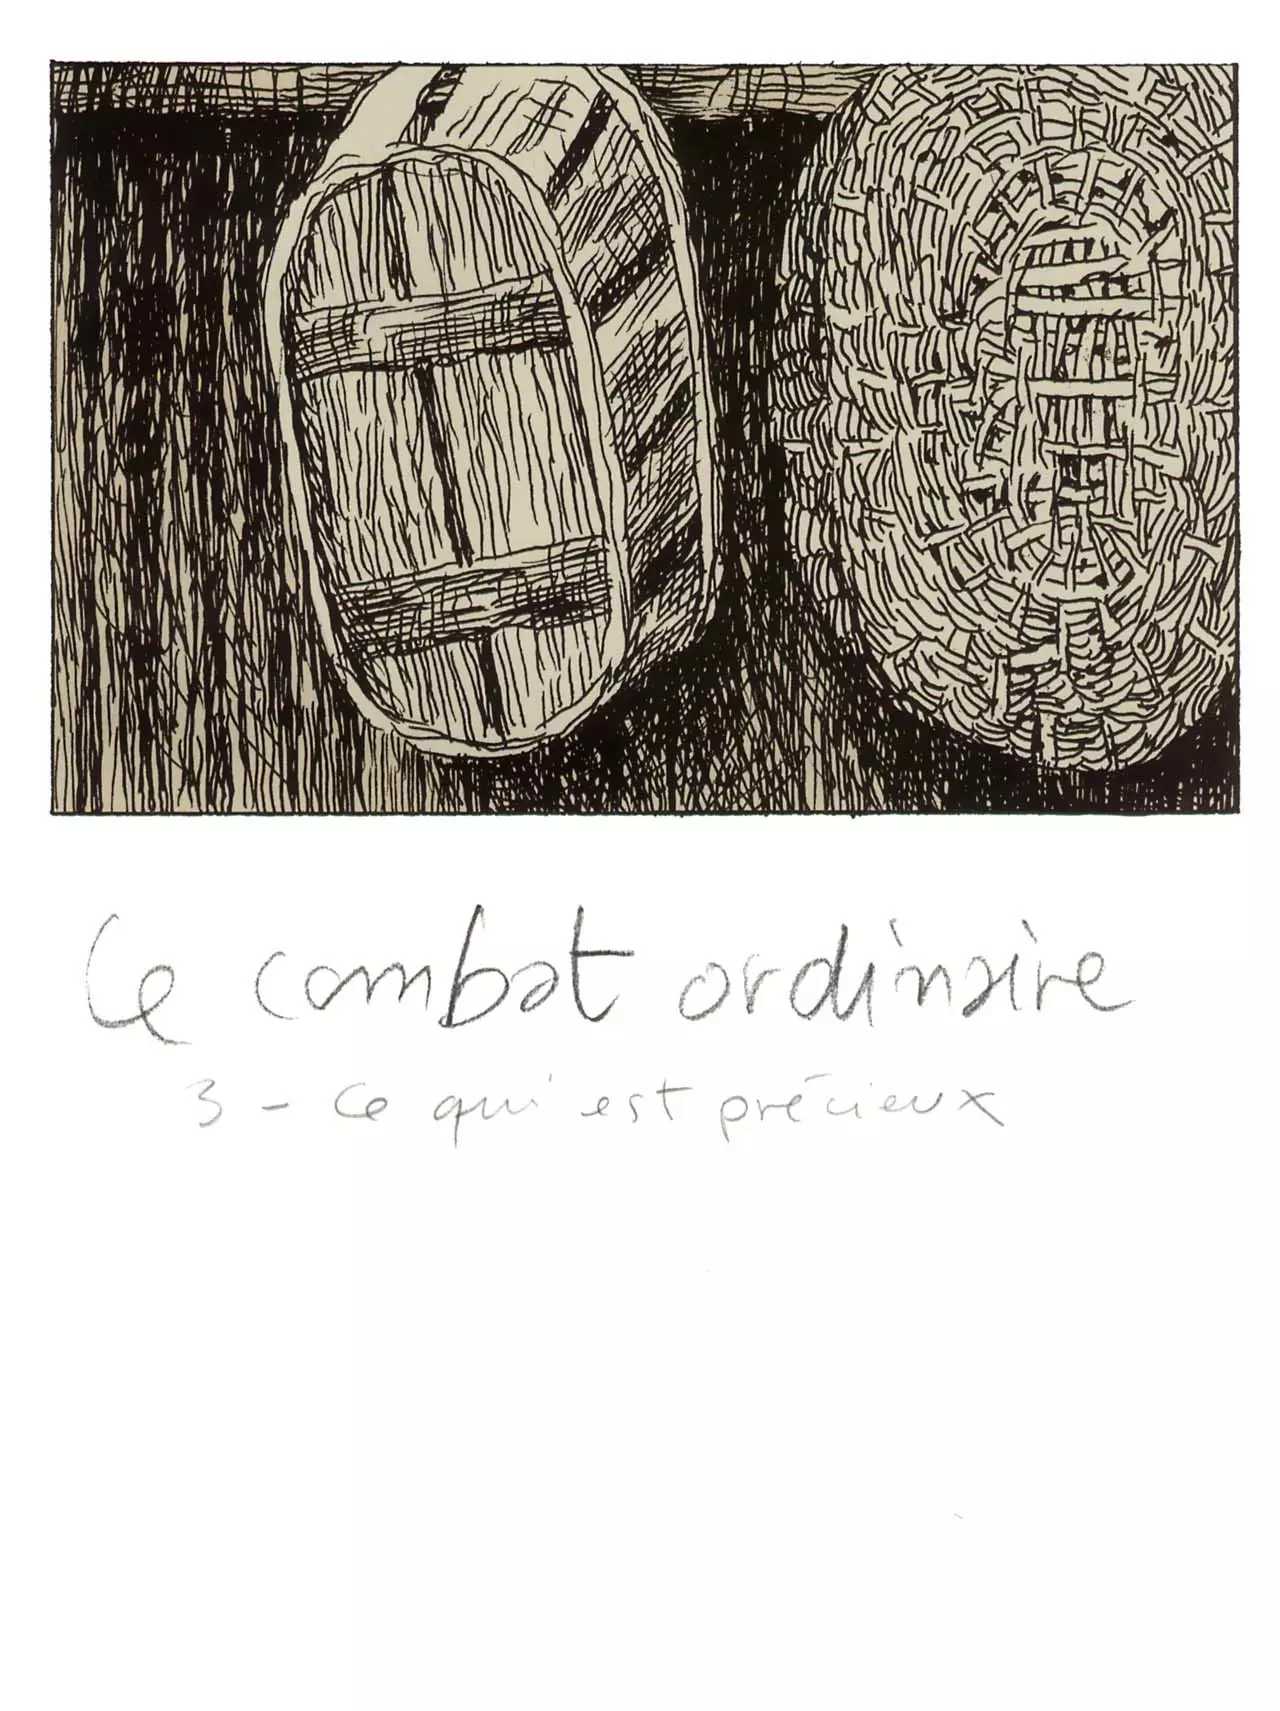 Le combat ordinaire
3 - Ce qui est précieux